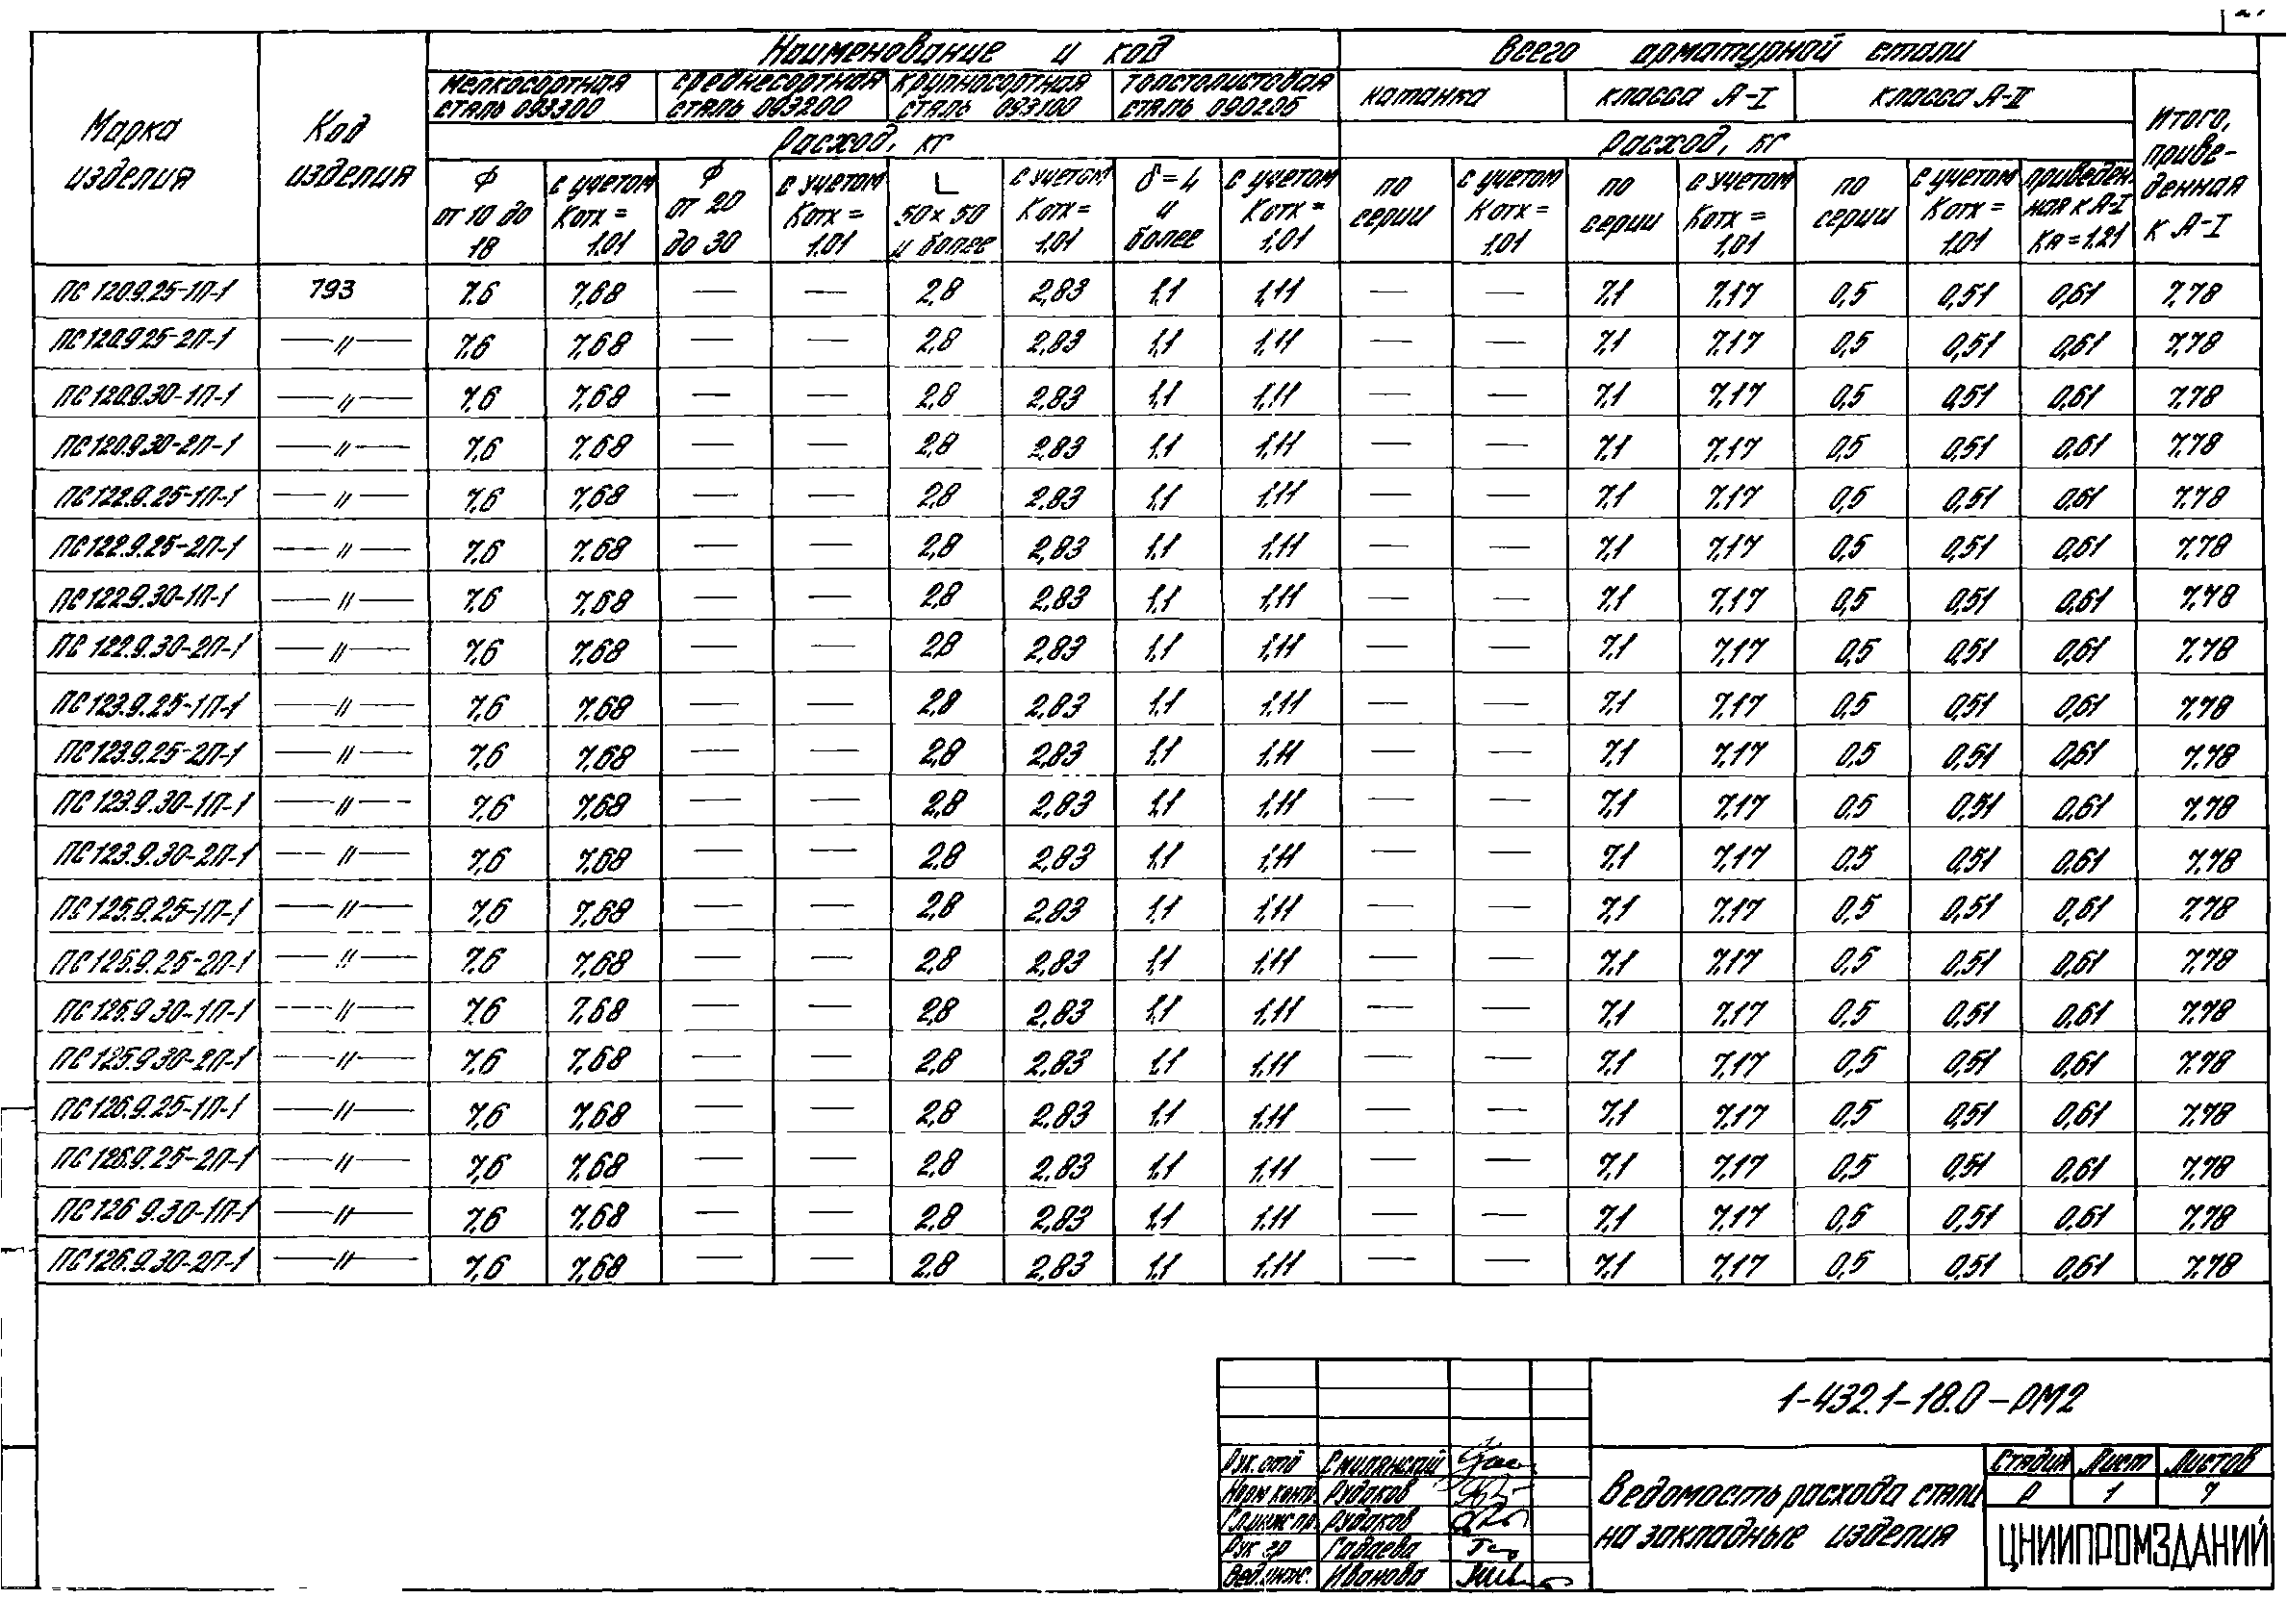 Наименование и код Всего арматурной стали
Марка изделия Код изделия мелкосортная сталь 093300 среднесортная сталь 093200 крупносортная сталь 093100 толстолистовая сталь 090206 катанка класса А-I класса А-II Итого, приведенная к А-I
Расход, кг Расход, кг
ф от 10 до 18 с учетом Котх = 1,01 ф от 20 до 30 с учетом Котх = 1,01 L 50×50 и более с учетом Котх = 1,01 δ=4 и более с учетом Котх = 1,01 по серии с учетом Котх = 1,01 по серии с учетом Котх = 1,01 по серии с учетом Котх = 1,01 приведенная к А-I Ка = 1.21
ПС 120.9.25-1П-1 793 7,6 7,68 — — 2,8 2,83 1,1 1,11 — — 7,1 7,17 0,5 0,51 0,61 7,78
ПС 120.9.25-2П-1 —〃— 7,6 7,68 — — 2,8 2,83 1,1 1,11 — — 7,1 7,17 0,5 0,51 0,61 7,78
ПС 120.9.30-1П-1 —〃— 7,6 7,68 — — 2,8 2,83 1,1 1,11 — — 7,1 7,17 0,5 0,51 0,61 7,78
ПС 120.9.30-2П-1 —〃— 7,6 7,68 — — 2,8 2,83 1,1 1,11 — — 7,1 7,17 0,5 0,51 0,61 7,78
ПС 122.9.25-1П-1 —〃— 7,6 7,68 — — 2,8 2,83 1,1 1,11 — — 7,1 7,17 0,5 0,51 0,61 7,78
ПС 122.9.25-2П-1 —〃— 7,6 7,68 — — 2,8 2,83 1,1 1,11 — — 7,1 7,17 0,5 0,51 0,61 7,78
ПС 122.9.30-1П-1 —〃— 7,6 7,68 — — 2,8 2,83 1,1 1,11 — — 7,1 7,17 0,5 0,51 0,61 7,78
ПС 122.9.30-2П-1 —〃— 7,6 7,68 — — 2,8 2,83 1,1 1,11 — — 7,1 7,17 0,5 0,51 0,61 7,78
ПС 123.9.25-1П-1 —〃— 7,6 7,68 — — 2,8 2,83 1,1 1,11 — — 7,1 7,17 0,5 0,51 0,61 7,78
ПС 123.9.25-2П-1 —〃— 7,6 7,68 — — 2,8 2,83 1,1 1,11 — — 7,1 7,17 0,5 0,51 0,61 7,78
ПС 123.9.30-1П-1 —〃— 7,6 7,68 — — 2,8 2,83 1,1 1,11 — — 7,1 7,17 0,5 0,51 0,61 7,78
ПС 123.9.30-2П-1 —〃— 7,6 7,68 — — 2,8 2,83 1,1 1,11 — — 7,1 7,17 0,5 0,51 0,61 7,78
ПС 125.9.25-1П-1 —〃— 7,6 7,68 — — 2,8 2,83 1,1 1,11 — — 7,1 7,17 0,5 0,51 0,61 7,78
ПС 125.9.25-2П-1 —〃— 7,6 7,68 — — 2,8 2,83 1,1 1,11 — — 7,1 7,17 0,5 0,51 0,61 7,78
ПС 125.9.30-1П-1 —〃— 7,6 7,68 — — 2,8 2,83 1,1 1,11 — — 7,1 7,17 0,5 0,51 0,61 7,78
ПС 125.9.30-2П-1 —〃— 7,6 7,68 — — 2,8 2,83 1,1 1,11 — — 7,1 7,17 0,5 0,51 0,61 7,78
ПС 126.9.25-1П-1 —〃— 7,6 7,68 — — 2,8 2,83 1,1 1,11 — — 7,1 7,17 0,5 0,51 0,61 7,78
ПС 126.9.25-2П-1 —〃— 7,6 7,68 — — 2,8 2,83 1,1 1,11 — — 7,1 7,17 0,5 0,51 0,61 7,78
ПС 126.9.30-1П-1 —〃— 7,6 7,68 — — 2,8 2,83 1,1 1,11 — — 7,1 7,17 0,5 0,51 0,61 7,78
ПС 126.9.30-2П-1 —〃— 7,6 7,68 — — 2,8 2,83 1,1 1,11 — — 7,1 7,17 0,5 0,51 0,61 7,78
1-432.1-18.0-РМ2
Рук.отд Смилянский
Норм контр. Рудаков
Гл.инж пр. Рудаков
Рук гр Гадаева
Вед.инж. Иванова
Ведомость расхода стали
на закладные изделия
Стадия Лист Листов
Р 1 7
ЦНИИПРОМЗДАНИЙ